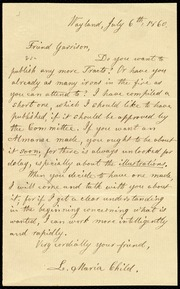 Wayland, July 6th, 1860.
Friend Garrison,
Do you want to
publish any more Tracts? Or have you
already as many irons in the fire as you
can attend to? I have compiled a
short one, which I should like to have
published if it should be approved by
the Committee. If you want an
Almanac made, you ought to be about
it soon, for there is always unlooked for
delay, especially about the illustrations.
When you decide to have one made,
I will come and talk with you about
it; for if I get a clear understanding
in the beginning concerning what is
wanted, I can work more intelligently
and rapidly.
Very cordially your friend,
L. Maria Child.